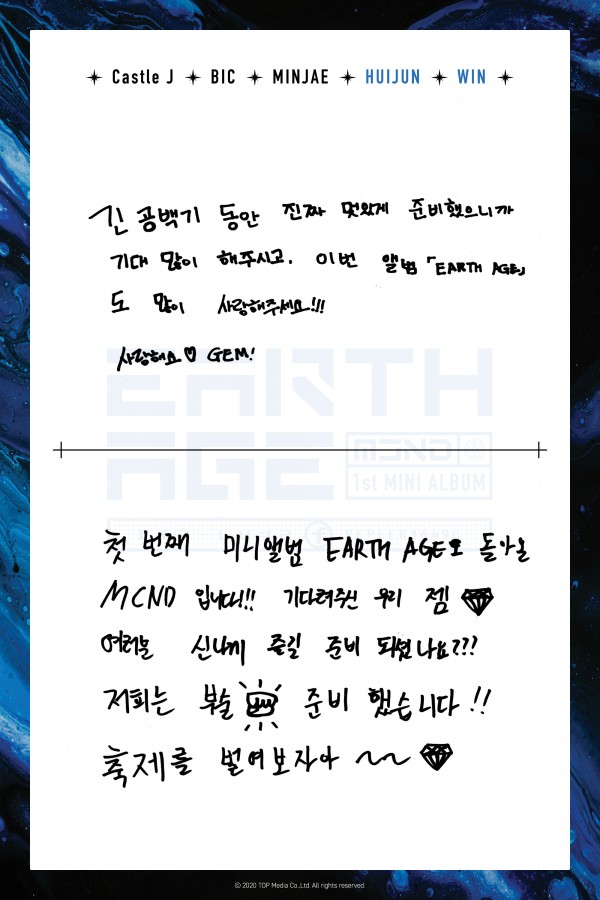 Castle J BIC MINJAE HUIJUN WIN
긴 공백기 동안 진짜 멋있게 준비했으니까
기대 많이 해주시고, 이번 앨범 「EARTH AGE」
도 많이 사랑해주세요!!!
사랑해요♡ GEM!
EARTH
AGE MCND
1st MINI ALBUM
첫 번째 미니앨범 EARTH AGE로 돌아온
MCND 입니다!! 기다려주신 우리 젬
여러분 신나게 즐길 준비 되셨나요???
저희는 부술 준비 했습니다!!
축제를 벌여보자아 ~~
© 2020 TOP Media Co.,Ltd. All rights reserved.